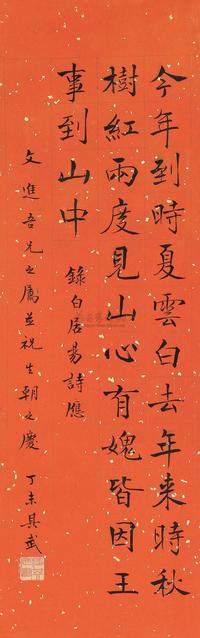 今年到時夏雲白去年来時秋
樹紅兩度見山心有媿皆因王
事到山中
錄白居易詩應
文進吾兄之屬並祝生朝之慶
丁未其武